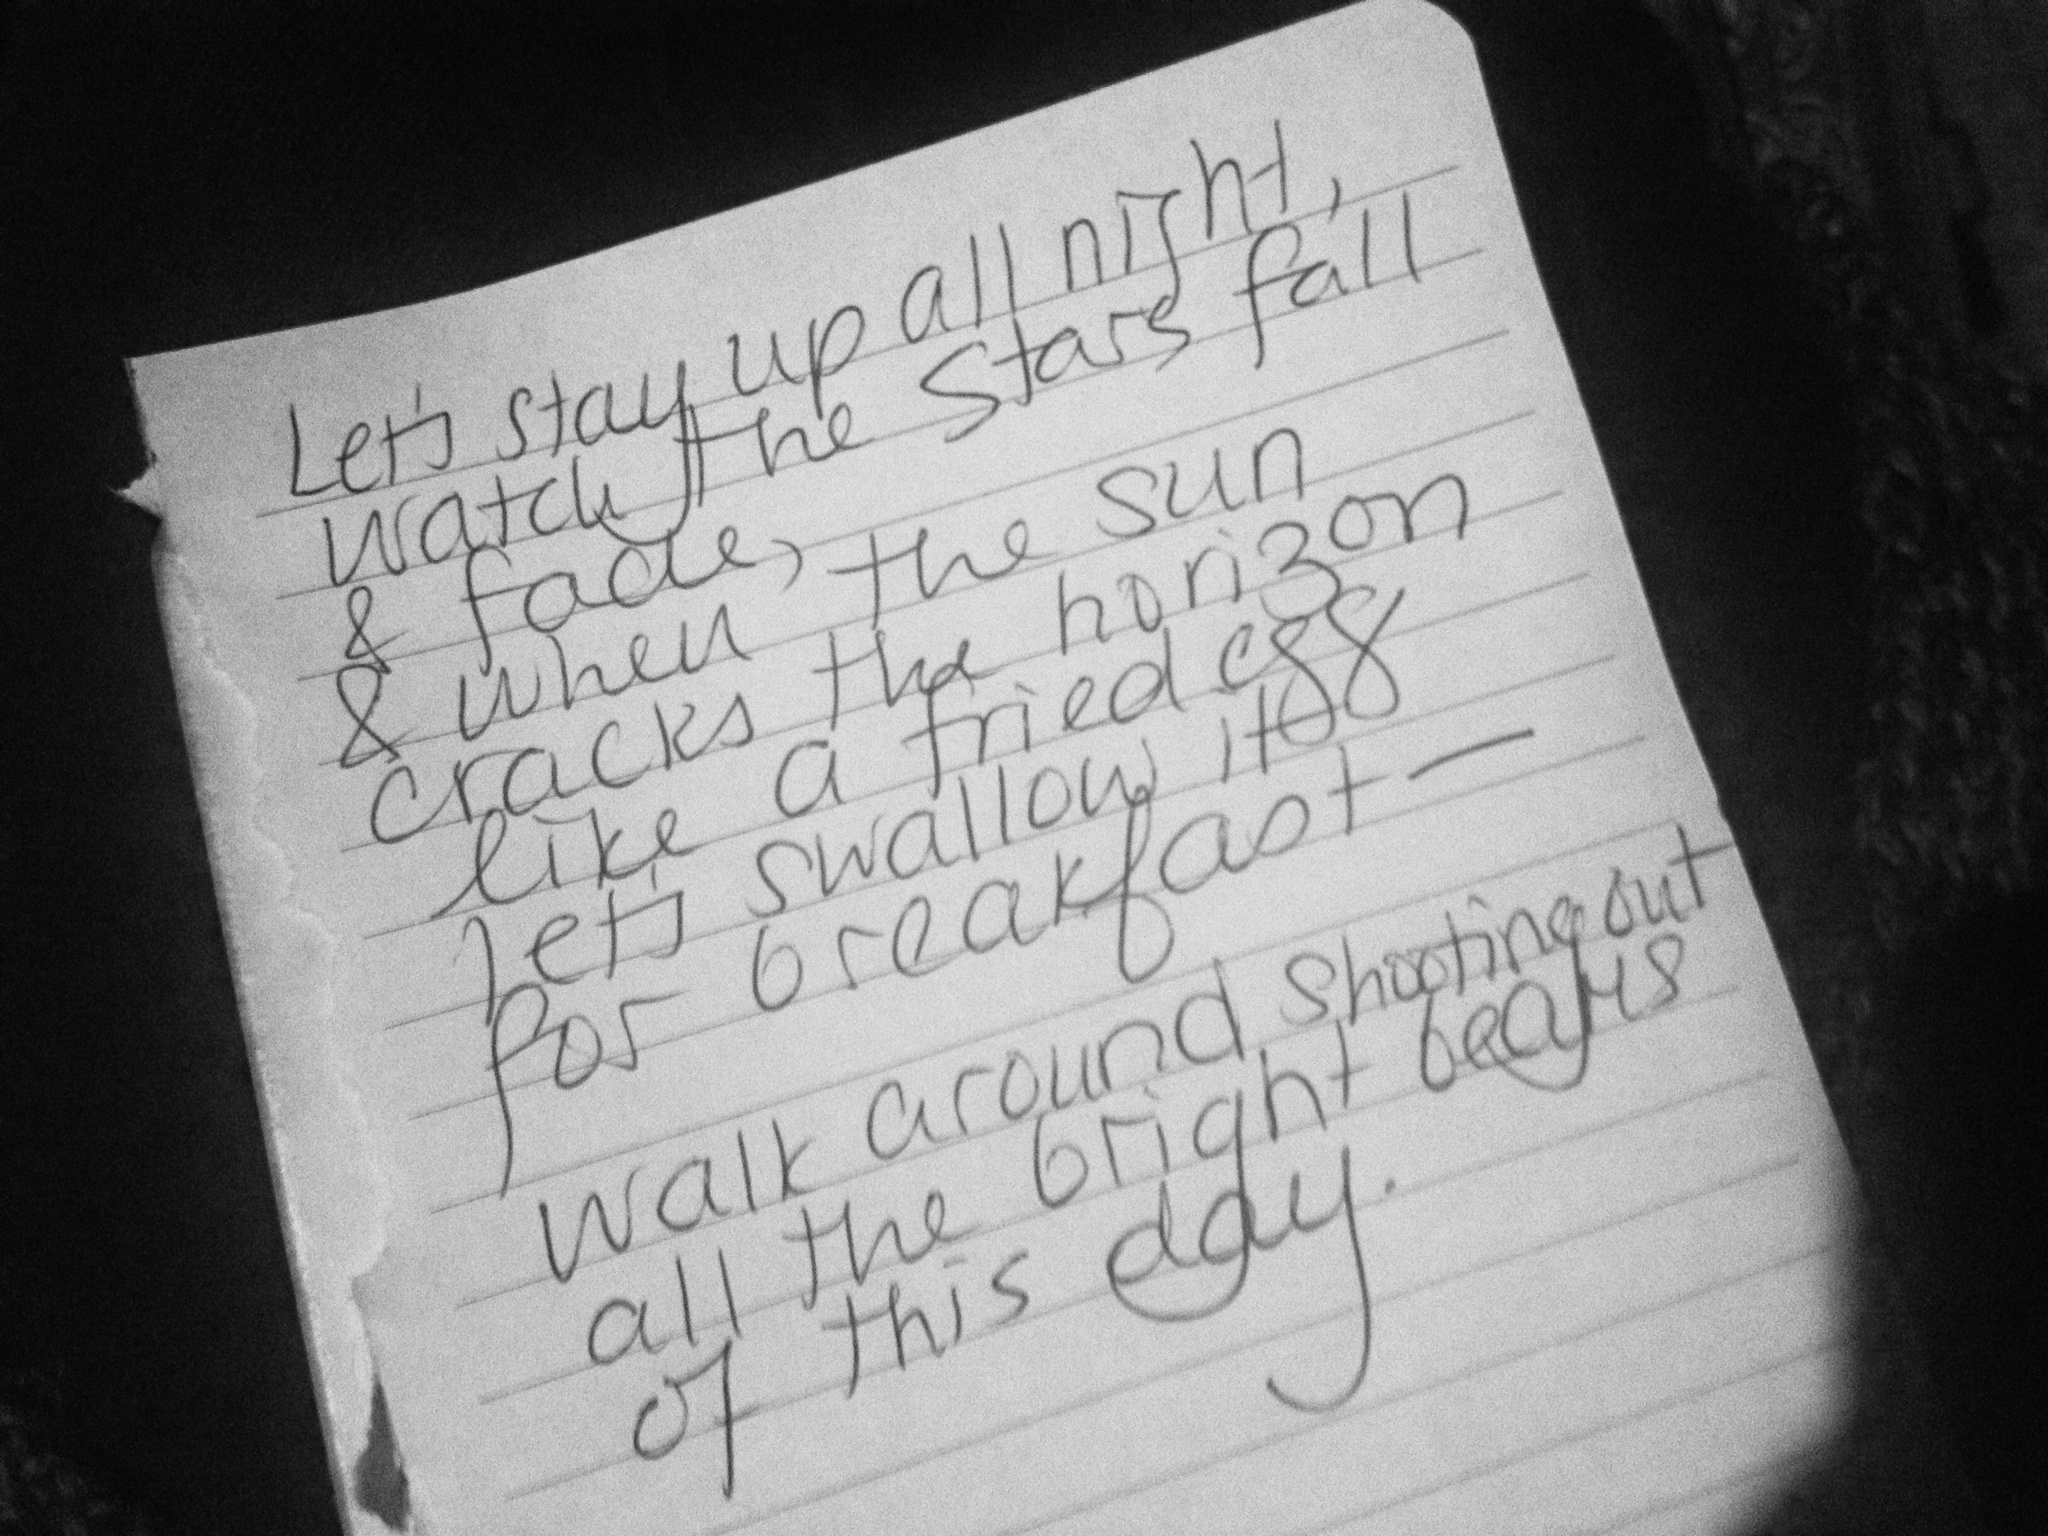 Let's stay up all night,
watch the stars fall
& fade,
& when, the sun
cracks the horizon
like a fried egg
let's swallow it
for breakfast —
walk around shooting out
all the bright beams
of this day.